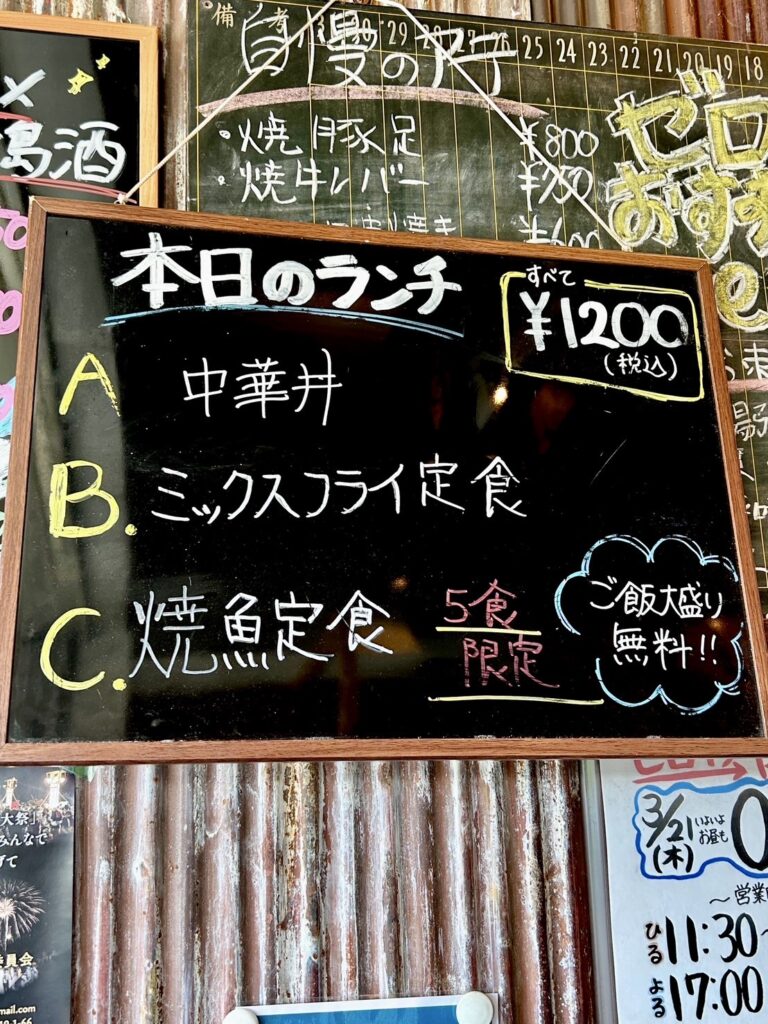 備考 30 29 28 27 26 25 24 23 22 21 20 19 18
自慢のアテ
・焼豚足 ¥800
・焼牛レバー ¥750
ゼロ
酒
本日のランチ
すべて
¥1200
(税込)
A 中華丼
B. ミックスフライ定食
C. 焼魚定食
5食
限定
ご飯大盛り
無料!!
大祭」
みんなで
げて
委員会
mail.com
3/21
(木)
いよいよ
お昼も
～営業
ひる 11:30～
よる 17:00